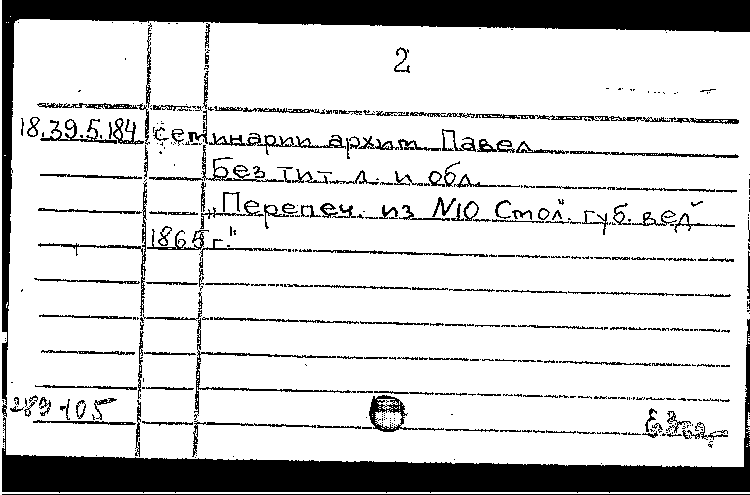 2
18.39.5.184 семинарии архим Павел
Без тит. л. и обл.
„Перепеч. из №10 Смол. губ. вед."
1865 г."
289-105